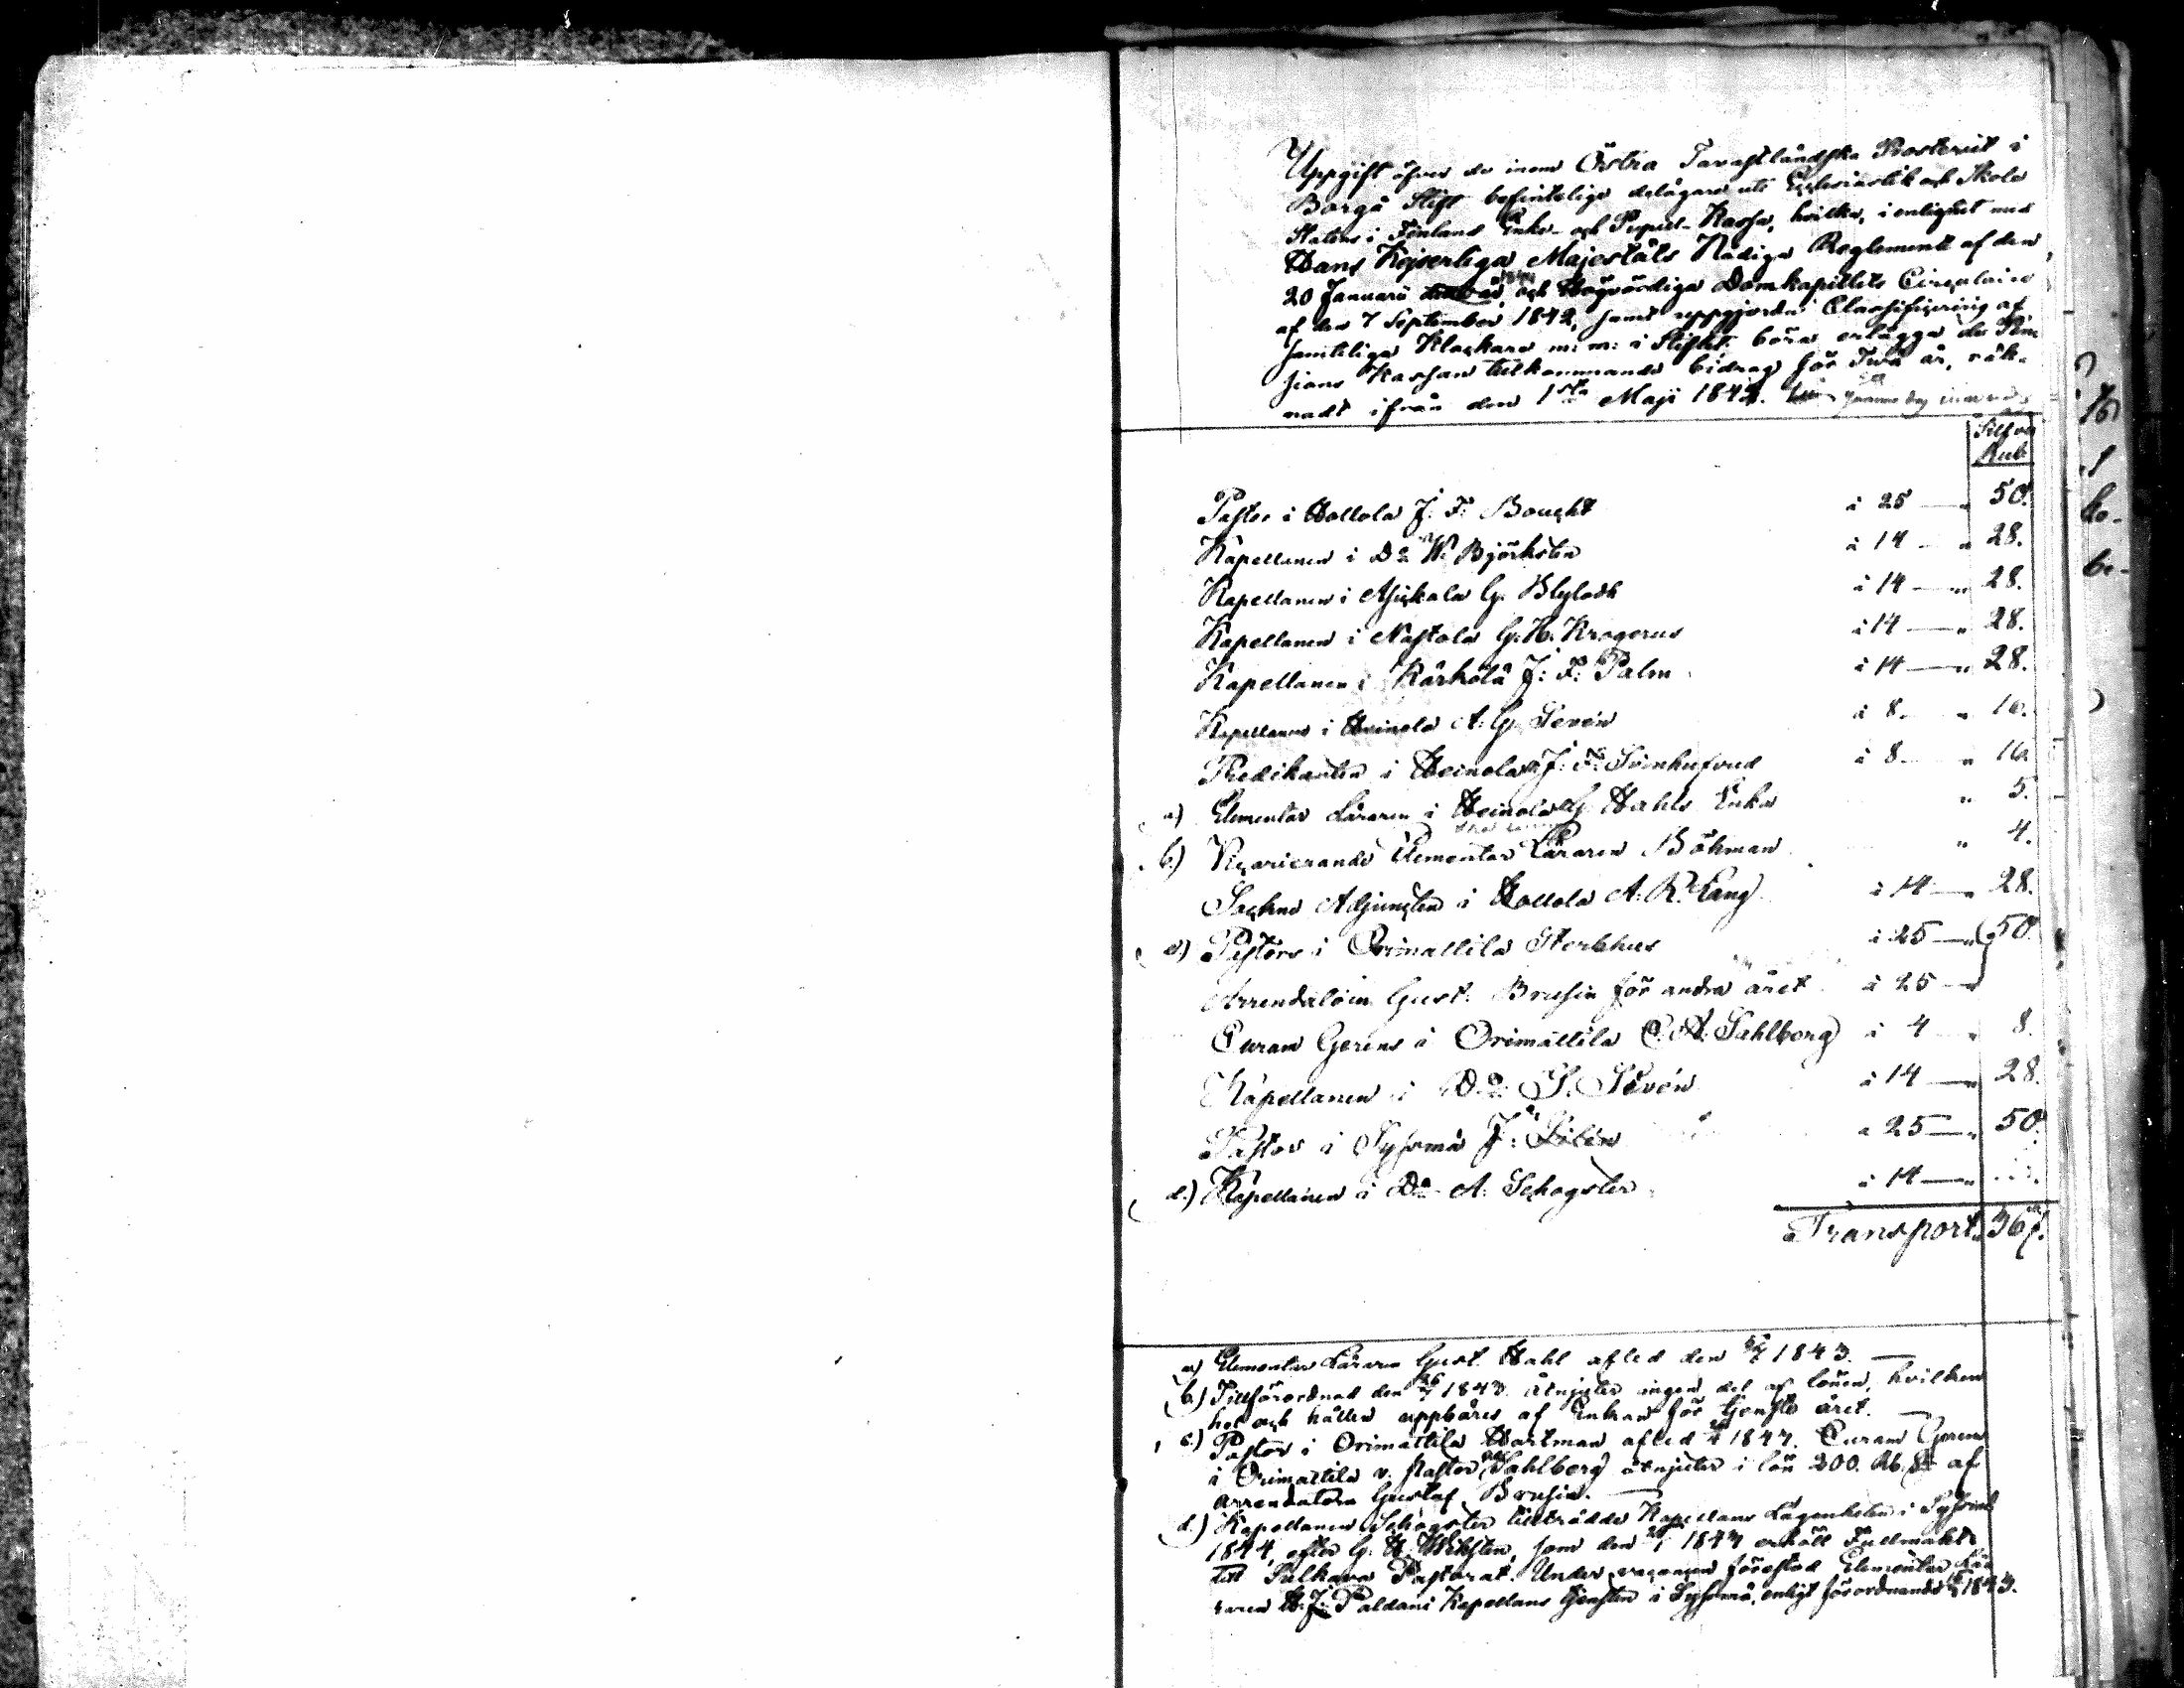 Uppgift öfver de inom Östra Tavastländska Prosteriet i
Borgå Stift befintelige delägare uti Ecclesiastik och Skole
Statens i Finland Enke- och Pupill-Kassa, hvilka, i enlighet med
Hans Kejserliga Majestäts Nådiga Reglemente af den
20 Januarii och Högvördiga Domkapitlets Circulaire
af den 7 September 1842, samt uppgjorda Classificering af
samteliga Klockare m: m: i Stiftet böra erlägga die Pen-
sions Kassan tillkommande bidrag för Två år, räk-
nadt ifrån den 1sta Maji 1842.
Silfver
Rub
Pastor i Hollola J. F. Boucht à 25 — " 50.
Kapellanen i Do W. Björkstén à 14 — " 28.
Kapellanen i Asickala G. Blybåth à 14 — " 28.
Kapellanen i Nastola G. H. Krogerus à 14 — " 28.
Kapellanen i Kärkölä J: F: Palm à 14 — " 28.
Kapellanen i Heinola A: G. Sevón à 8. " 16.
Predikanten i Heinola J: F: Svinhufvud à 8. " 16
a) Elementar Läraren i Heinola G. Hahls Enka " 5.
b.) Vicarierande Elementar Läraren Böhman " 4.
Sockne Adjuncten i Hollola A: R. Lang à 14 — " 28.
c) Pastors i Orimattila Sterbhus à 25 — " 50.
Arrendatorn Gust. Brusin för andra året à 25 — "
Curam Gerens i Orimattila C. A. Sahlberg à 4 " 8.
Kapellanen i Do S. Sevón à 14 — " 28.
Pastor i Sysmä J: à 25 — " 50.
d.) Kapellanen i Do A: Schogster à 14 — "
Transport. 367.
a) Elementar Läraren Gust. Hahl afled den 1843. —
b.) Tillförordnad den 1843. åtnjuter ingen del af lönen, hvilken
hel och hållen uppbäres af Enkan för tjenste året. —
c.) Pastor i Orimattila Hartman afled 1842. Curam Gerens
i Orimattila v. Pastor Sahlberg åtnjuter i lön 200. Rb. Sr af
Arrendatorn Gustaf Brusin. —
d.) Kapellanen Schogster tillträdde Kapellans Lägenheten i Sysmä
1844, efter G. H. som den 1843 erhöll Fullmakt
till Sulkava Pastorat. Under vacancen förestod Elementar Lä-
raren H. J: Paldani Kapellans tjensten i Sysmä, enligt förordnande 1843.